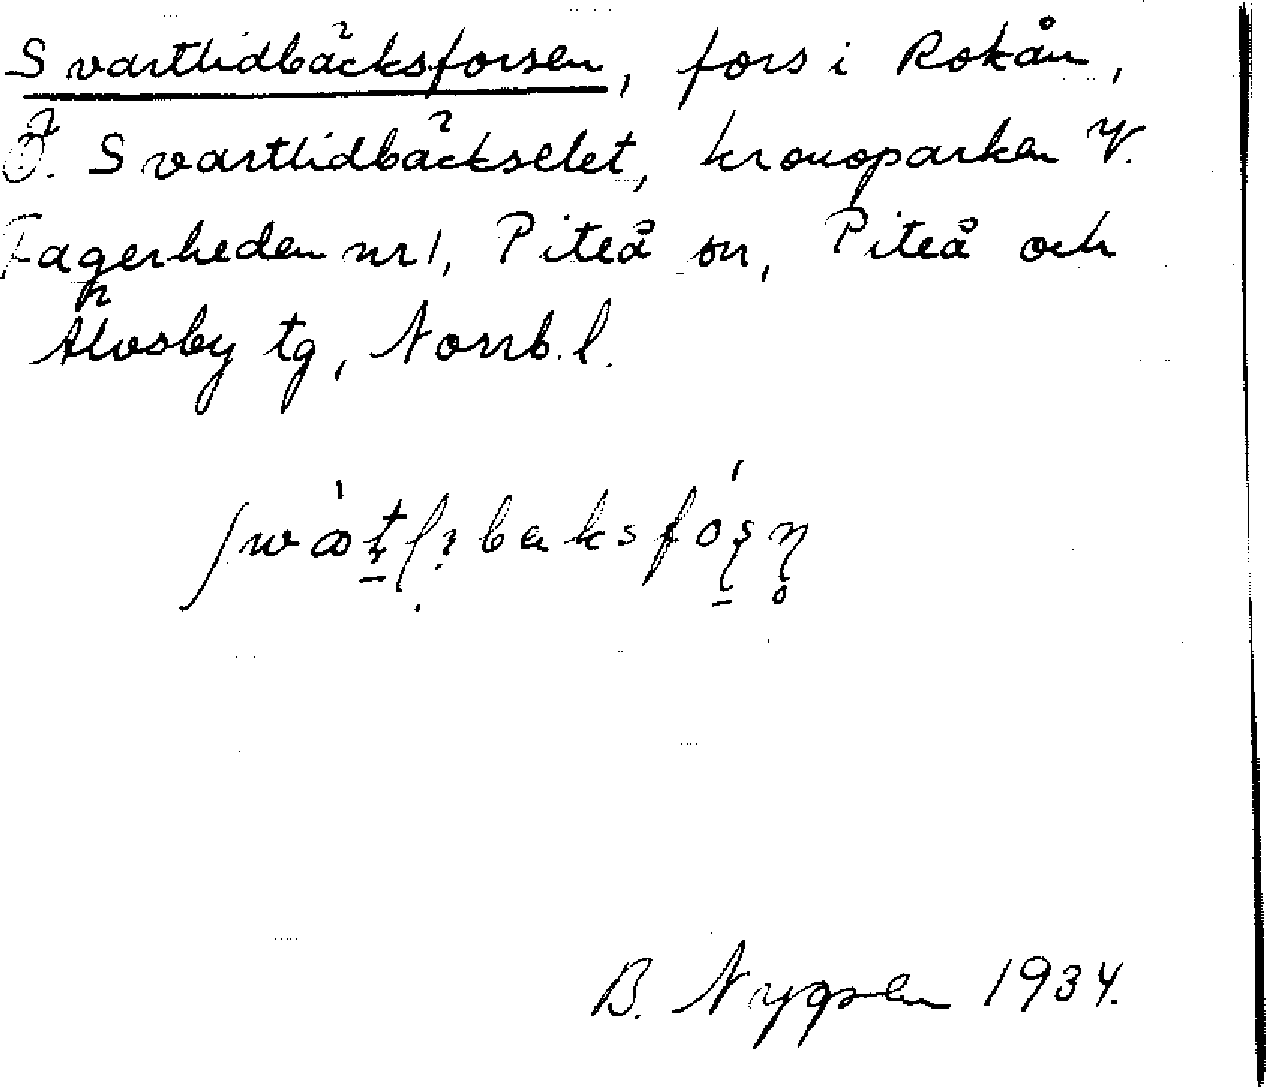 Svartlidbäcksforsen, fors i Rokån,
Ö. Svartlidbäckselet, kronoparken V.
Fagerheden nr 1, Piteå sn, Piteå och
Älvsby tg, Norrb. l.
B. Nygren 1934.